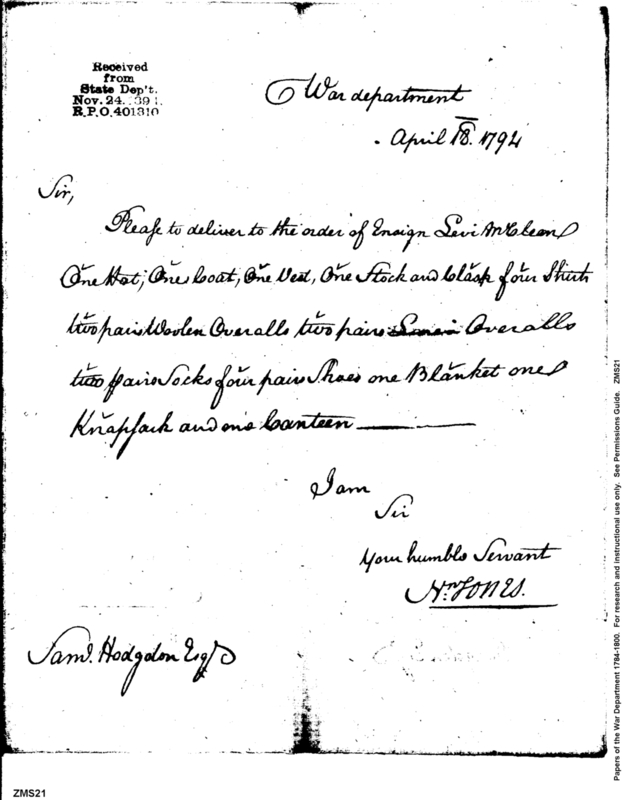 Received
from
State Dep't.
Nov. 24. 39
R.P.O. 401310
War department
April 18. 1794
Sir,
Please to deliver to the order of Ensign Levi McClean
One Hat, One Coat, One Vest, One Stock and Clasp four Shirts
two pairs Woolen Overalls two pairs Overalls
two pairs Socks four pairs Shoes one Blanket one
Knapsack and one Canteen
I am
Sir
Your humble Servant
Jones.
Saml. Hodgdon Esqr
Papers of the War Department 1784-1800. For research and instructional use only. See Permissions Guide. ZMS21
ZMS21